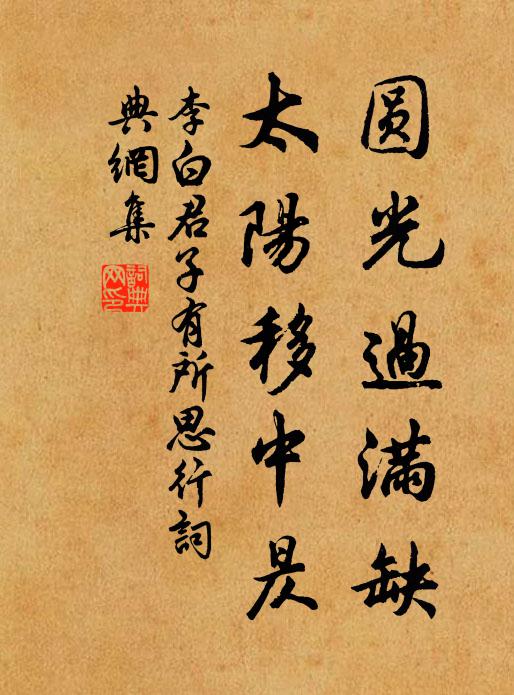 圓光過滿缺
太陽移中昃
李白君子有所思行詞
典網集
詞典
网印